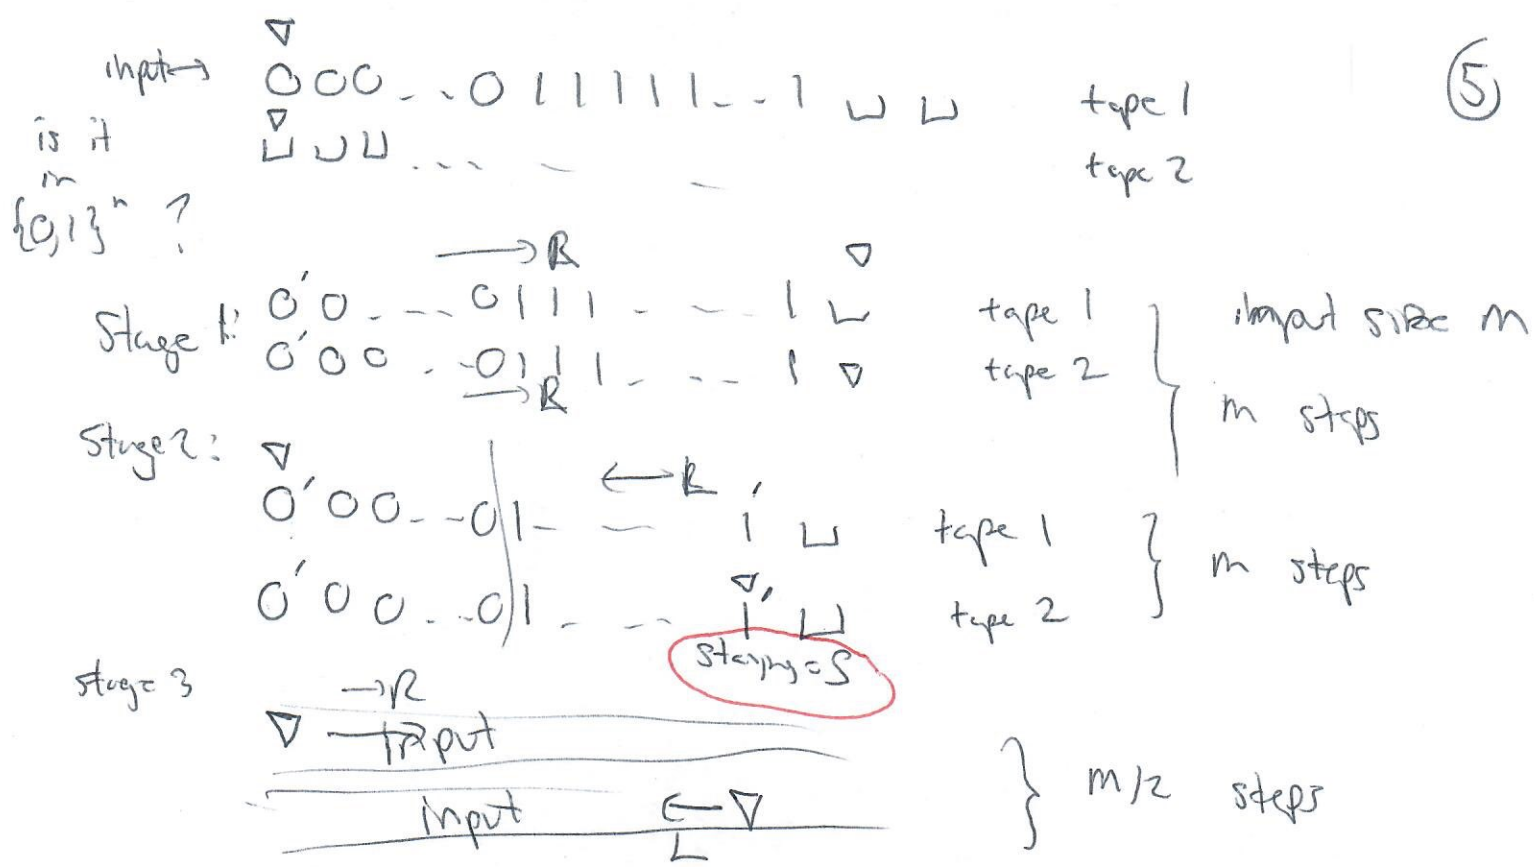 input → 0 0 0 - - 0 1 1 1 1 1 - - 1 ⊔ ⊔ tape 1 ⑤
is it in {0,1}ⁿ ?
⊔ ⊔ ⊔ . . . . tape 2
→ R
Stage 1: 0' 0 - - - 0 1 1 1 - - - 1 ⊔ tape 1
0' 0 0 . - 0 1 1 1 - - - 1 tape 2
→ R
input size m
m steps
Stage 2:
← L
0' 0 0 - - 0 1 - - 1' ⊔ tape 1
0' 0 0 . . 0 1 . - - 1' ⊔ tape 2
m steps
staying = S
stage 3
→ R
→ input
input ←
L
m/2 steps